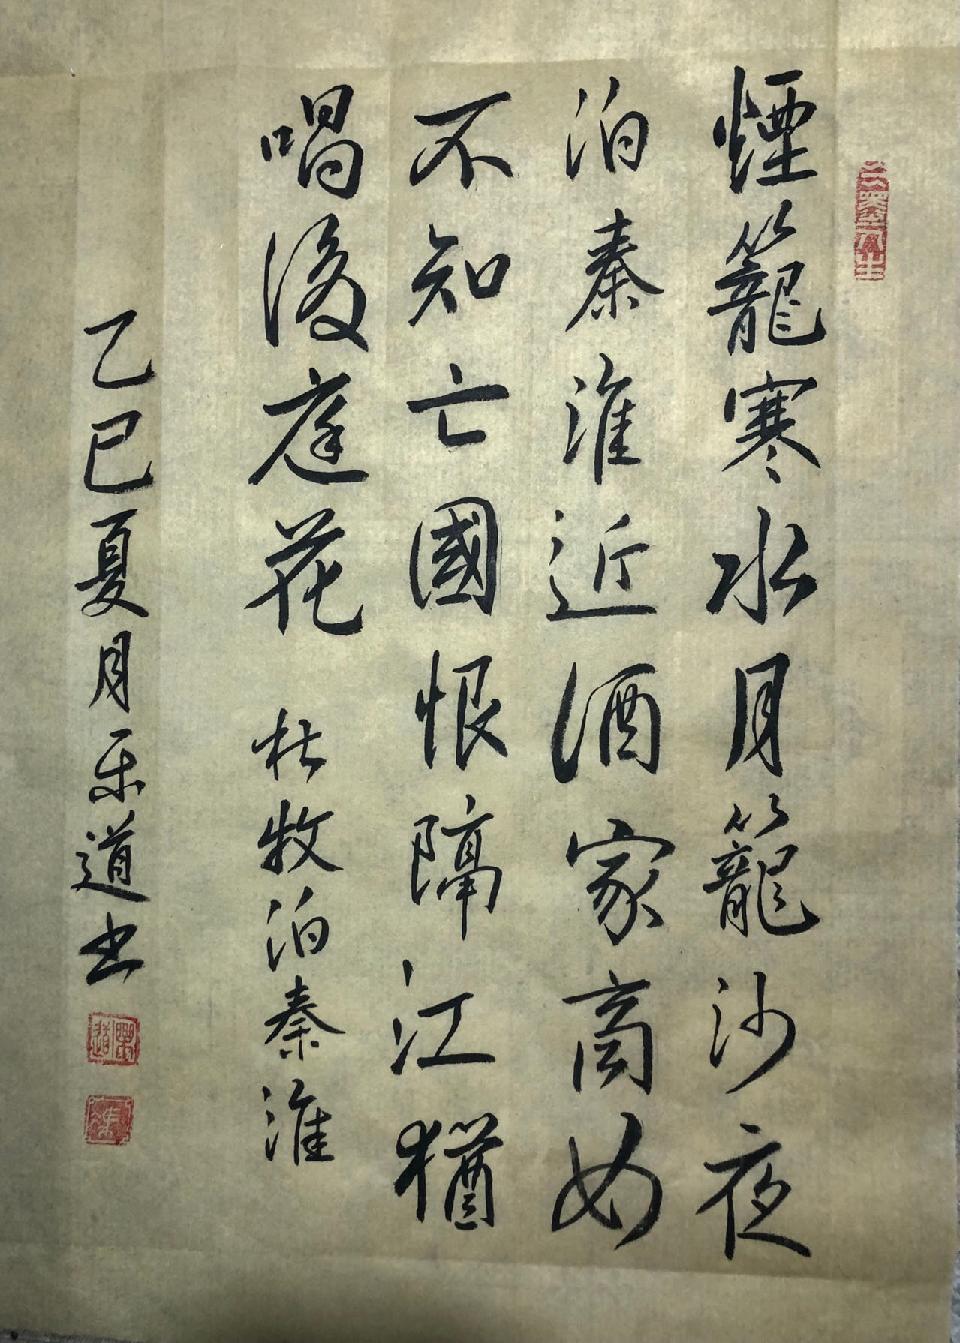 煙籠寒水月籠沙夜
泊秦淮近酒家商女
不知亡國恨隔江猶
唱後庭花 杜牧泊秦淮
乙巳夏月乐道书